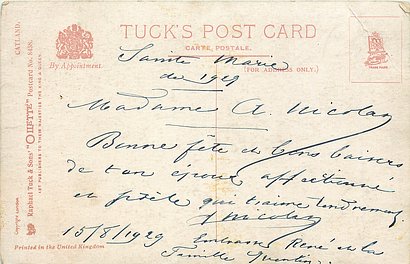 TUCK'S POST CARD
CARTE POSTALE.
(FOR ADDRESS ONLY.)
By Appointment.
TRADE MARK
CATLAND.
Raphael Tuck & Sons' "OILETTE" Postcard No. 8498.
ART PUBLISHERS TO THEIR MAJESTIES THE KING & QUEEN.
Copyright London
Printed in the United Kingdom
Sainte Marie
de 1929
Madame A. Nicolas
Bonne fête et bons baisers
de ton époux affectionné
et fidèle qui t'aime tendrement
Nicolas
15/8/1929 Embrasse René et la
famille